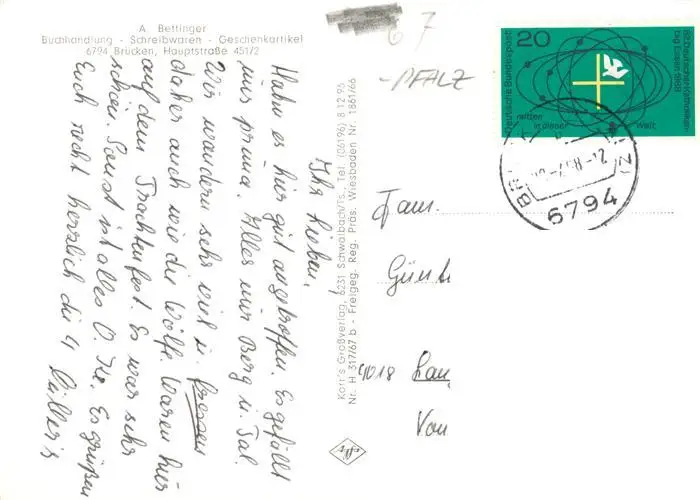 A. Bettinger
Buchhandlung - Schreibwaren - Geschenkartikel
6794 Brücken, Hauptstraße 451/2
Ihr Lieben,
Haben es hier gut angetroffen. Es gefällt
uns prima. Alles nur Berg u. Tal.
Wir wandern sehr viel u. fressen
daher auch wie die Wölfe. Waren hier
auf dem Trachtenfest. Es war sehr
schön. Sonst ist alles O. Ke. Es grüßen
Euch recht herzlich die 4 Müller's
Korr's Großverlag, 6231 Schwalbach/Ts., Tel. (06196) 8 12 96
Nr. H 317/67 b - Freigeg. Reg. Präs. Wiesbaden Nr. 1861/66
67
-PFALZ
20
Deutsche Bundespost
82. Deutscher Katholikentag Essen 1968
mitten
in dieser Welt
6794
Fam.
Günt
4018 Lan
Von